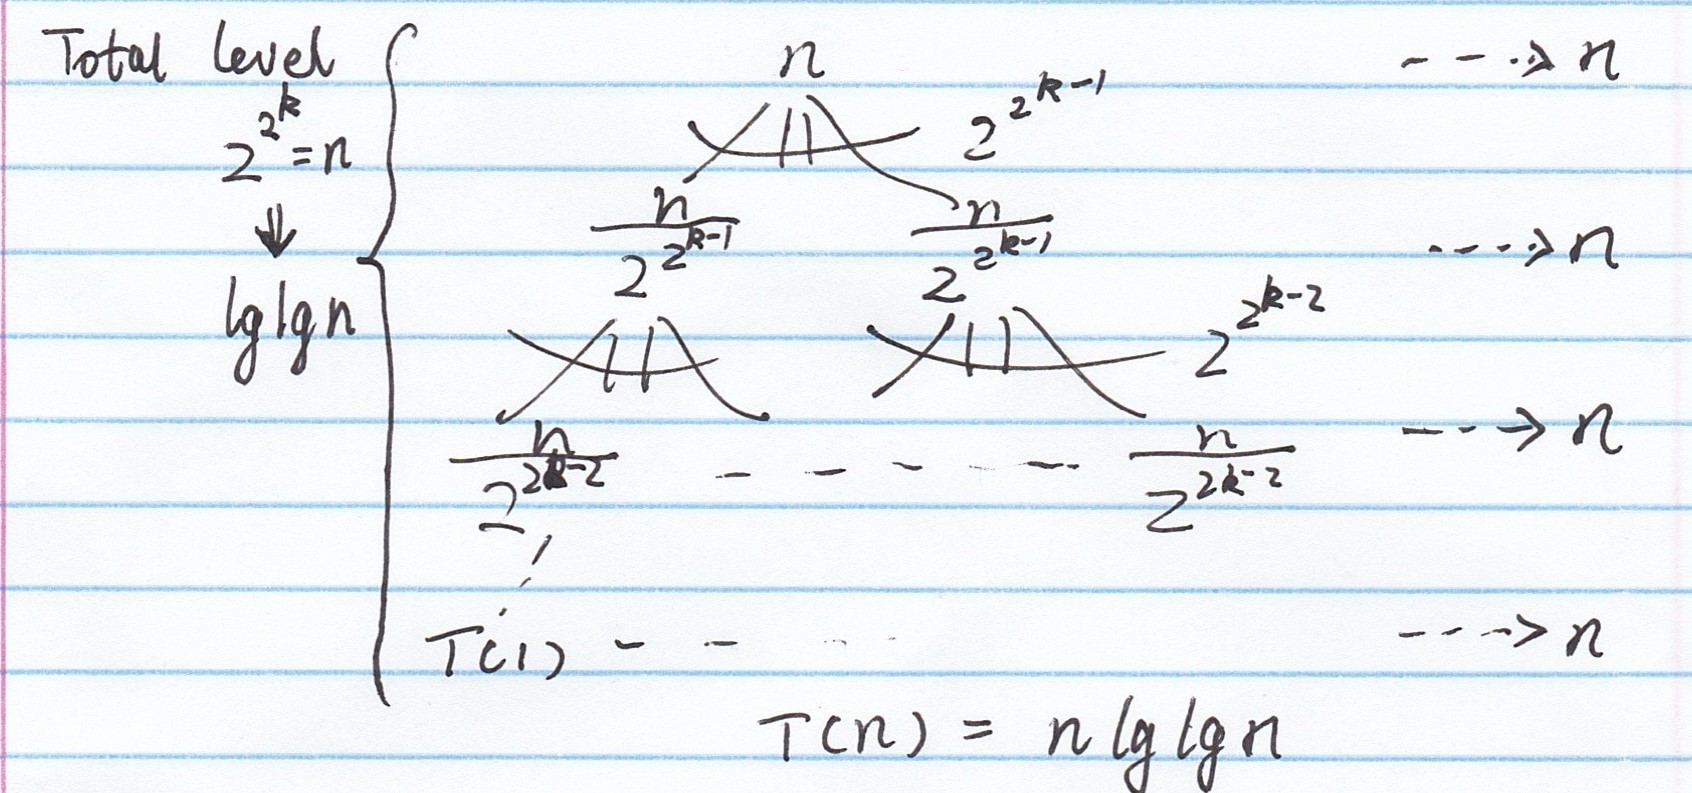 Total level
2^{2^k} = n
⇓
lg lg n
n ---> n
2^{2^{k-1}}
n/2^{2^{k-1}} n/2^{2^{k-1}} ---> n
2^{2^{k-2}}
n/2^{2^{k-2}} - - - - - n/2^{2^{k-2}} ---> n
T(1) - - - - ---> n
T(n) = n lg lg n